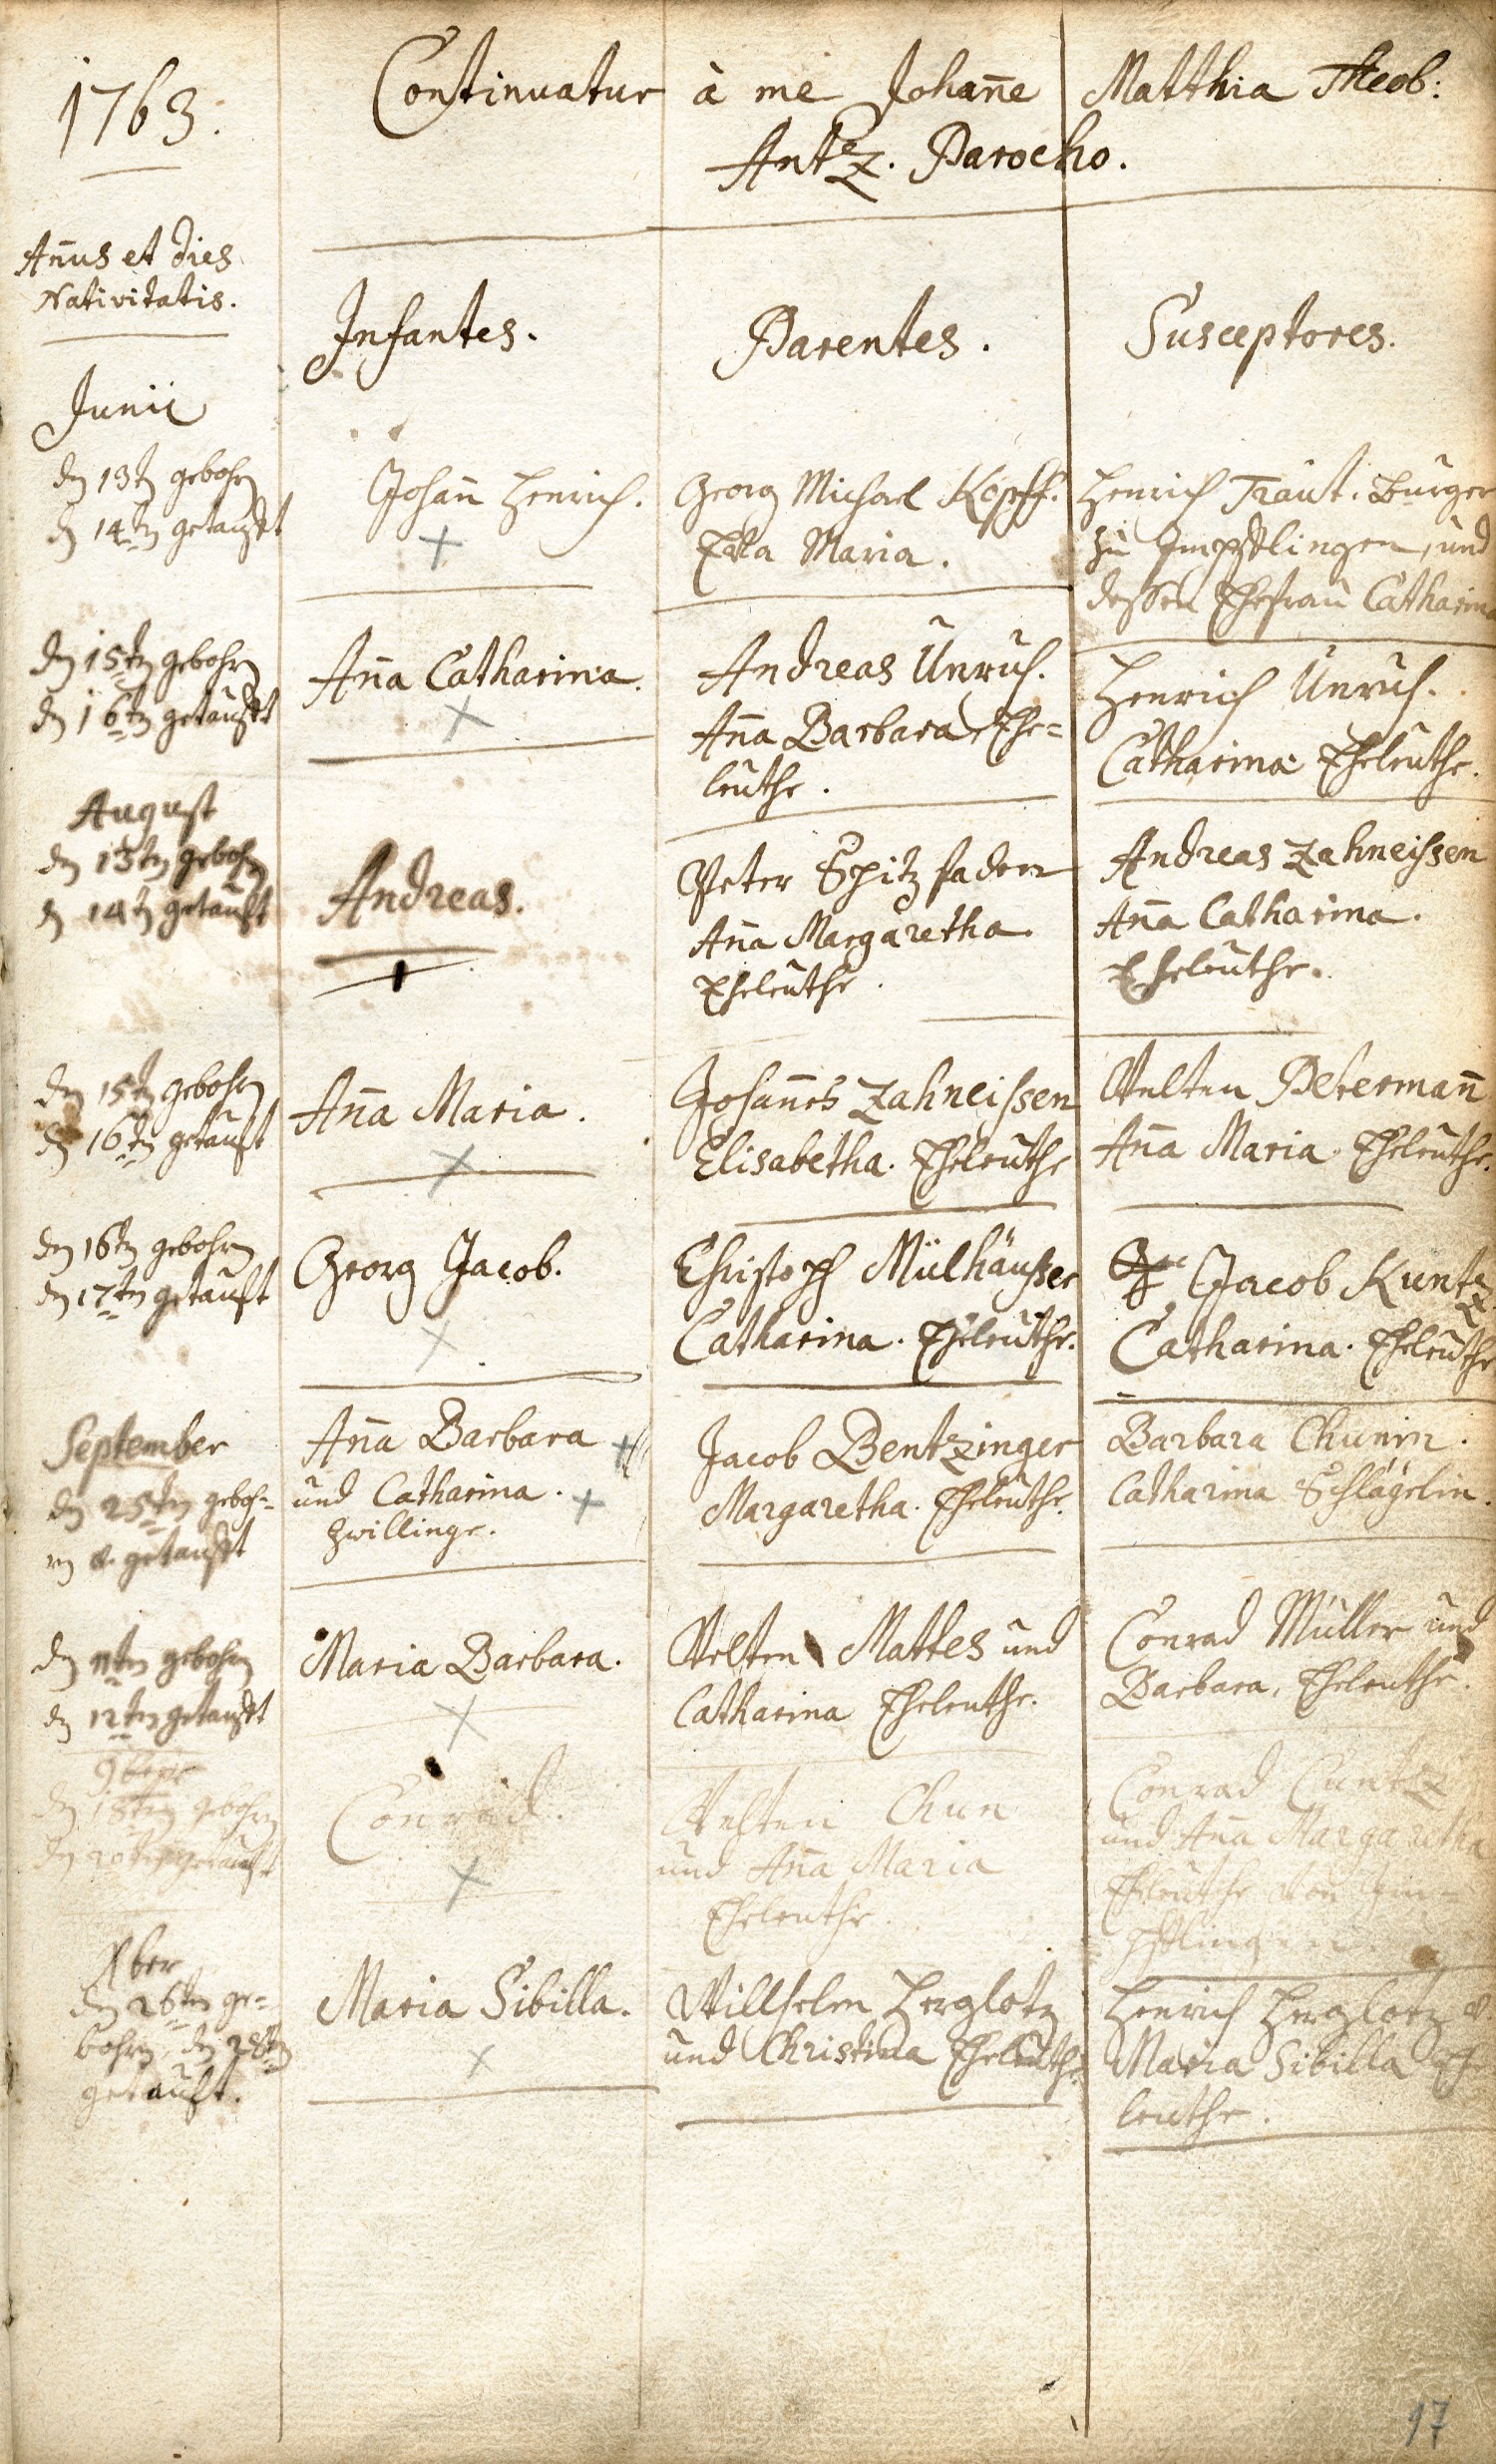 1763.
Continuatur à me Johañe Matthia Theob:
Antz. Parocho.
Añus et dies
Nativitatis.
Infantes.
Parentes.
Susceptores.
Junii
den 13ten gebohren
den 14ten getaufft
Johañ Henrich.
Georg Michael Kopff.
Eva Maria.
Henrich Traut. Burger
zu Impflingen, und
dessen Ehefrau Catharina
den 15ten gebohren
den 16ten getaufft
Aña Catharina.
Andreas Unruh.
Aña Barbara Ehe=
leuthe.
Henrich Unruh.
Catharina Eheleuthe.
August
den 13ten gebohren
den 14ten getauft
Andreas.
Peter Spitzfaden
Aña Margaretha
Eheleuthe.
Andreas Zahneissen
Aña Catharina.
Eheleuthe.
den 15ten gebohren
den 16ten getauft
Aña Maria.
Johañes Zahneissen
Elisabetha. Eheleuthe
Velten Petermañ
Aña Maria. Eheleuthe.
den 16ten gebohren
den 17ten getauft
Georg Jacob.
Christoph Mülhäusser
Catharina. Eheleuthe.
Jacob Kuntz
Catharina. Eheleuthe
September
den 25ten geboh=
ren v. getaufft
Aña Barbara
und Catharina.
Zwillinge.
Jacob Bentzinger
Margaretha. Eheleuthe.
Barbara Chunin.
Catharina Schlägelin.
den 11ten gebohren
den 12ten getaufft
Maria Barbara.
Velten Mattes und
Catharina Eheleuthe.
Conrad Müller und
Barbara, Eheleuthe.
9bris
den 18ten gebohren
den 20ten getauft
Conrad.
Velten Chun
und Aña Maria
Eheleuthe.
Conrad Cuntz
und Aña Margaretha
Eheleuthe von Im=
pflingen.
Xber
den 26ten ge=
bohren, den 28ten
getauft.
Maria Sibilla.
Willhelm Herglotz
und Christina Eheleuthe.
Henrich Herglotz v.
Maria Sibilla Ehe
leuthe.
17